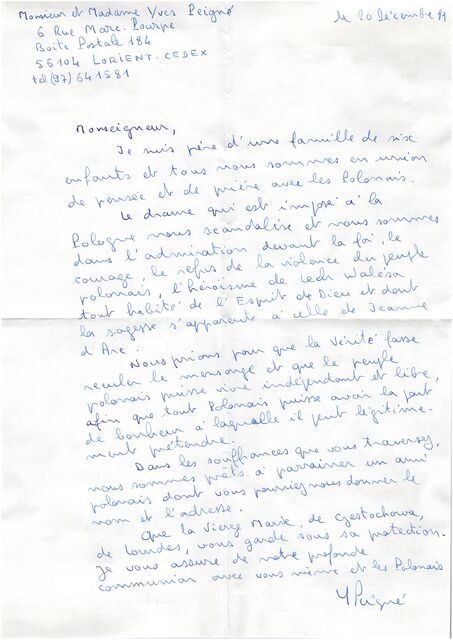 Monsieur et Madame Yves Peigné
6 Rue Marc. Pourpe
Boîte Postale 184
56104 LORIENT-CEDEX
tél (97) 641581
le 20 Décembre 81
Monseigneur,
Je suis père d'une famille de six
enfants et tous nous sommes en union
de pensée et de prière avec les Polonais.
Le drame qui est imposé à la
Pologne nous scandalise et nous sommes
dans l'admiration devant la foi, le
courage, le refus de la violence du peuple
polonais, l'héroïsme de Lech Walesa
tout habité de l'Esprit de Dieu et dont
la sagesse s'apparente à celle de Jeanne
d'Arc.
Nous prions pour que la Vérité fasse
reculer le mensonge et que le peuple
polonais puisse vivre indépendant et libre,
afin que tout Polonais puisse avoir la part
de bonheur à laquelle il peut légitime-
ment prétendre.
Dans les souffrances que vous traversez,
nous sommes prêts à parrainer un ami
polonais dont vous pourriez nous donner le
nom et l'adresse.
Que la Vierge Marie, de Czestochowa,
de Lourdes, vous garde sous sa protection.
Je vous assure de notre profonde
communion avec vous même et les Polonais
Y Peigné